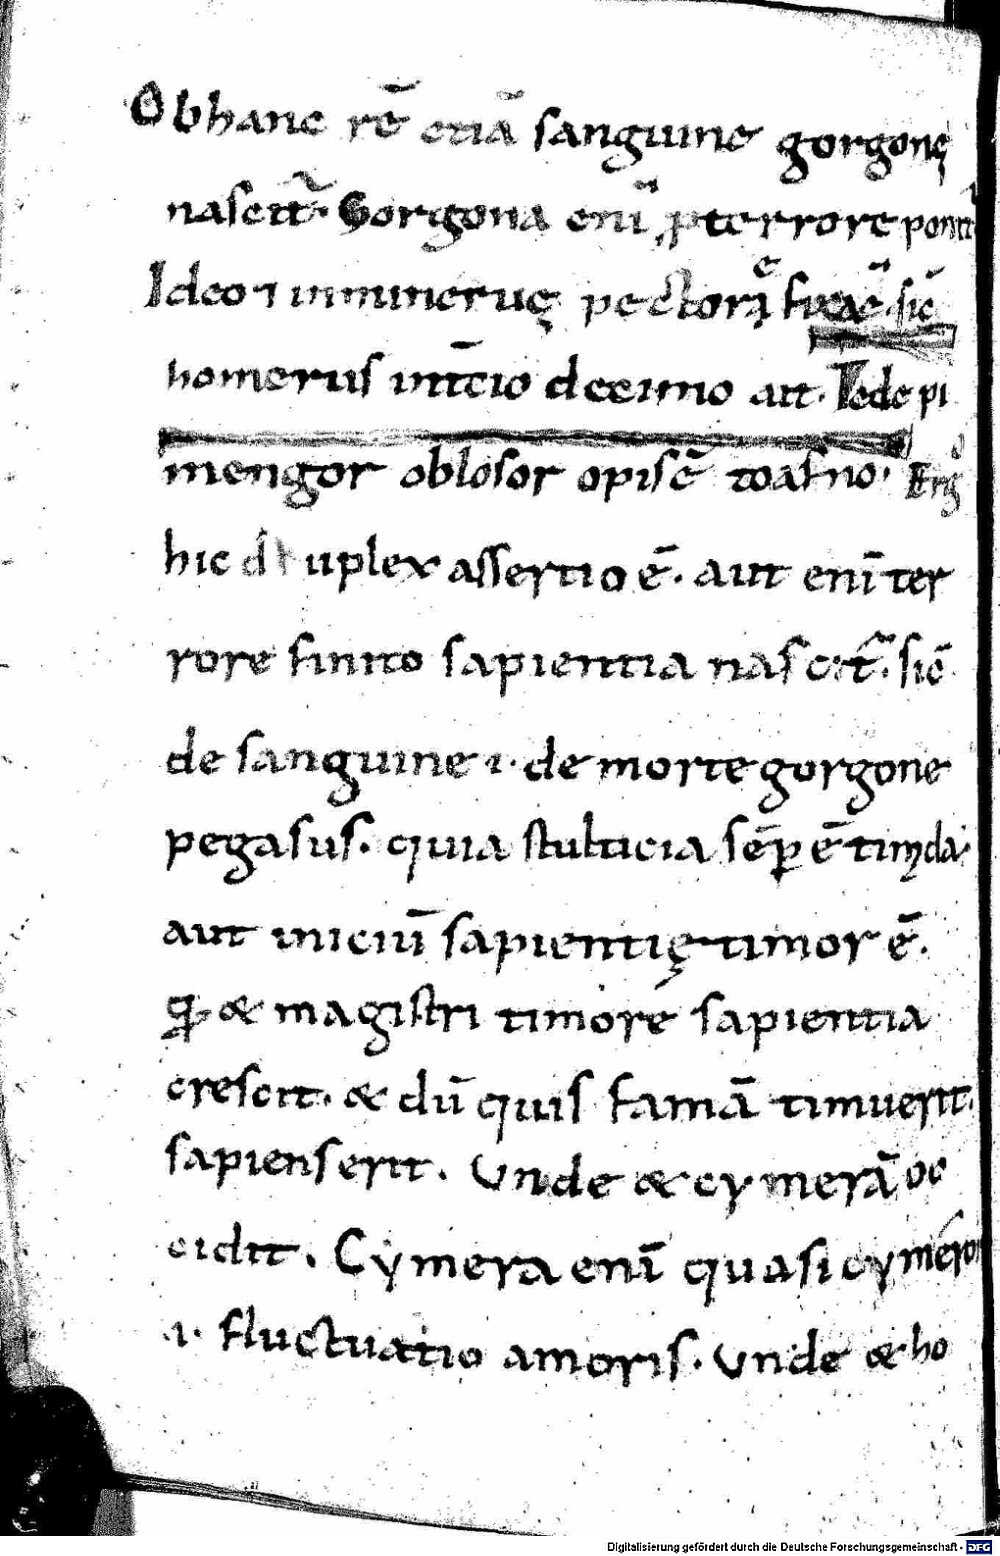 Obhanc rē etiā sanguine gorgonę
nascit̃. Gorgona enī ꝓterrore ponit᷑
Ideo ⁊ inmineruę pectorę fixa ē. sic̄
homerus int̄cio decimo ait. Tede pi
mengor oblosor opisc̄ toasno. Ergͦ
hic d uplex assertio ē. aut enī ter
rore finito sapientia nascit̃. sic̄
de sanguine .i. de morte gorgone
pegasus. quia stulticia sēp ē timida.
aut iniciū sapientię timor ē.
qꝓ & magistri timore sapientia
crescit. & dū quis famā timuerit.
sapiens erit. Unde & cymerā oc
cidit. Cymera enī quasi cymeron
.i. fluctuatio amoris. Unde & ho
Digitalisierung gefördert durch die Deutsche Forschungsgemeinschaft - DFG